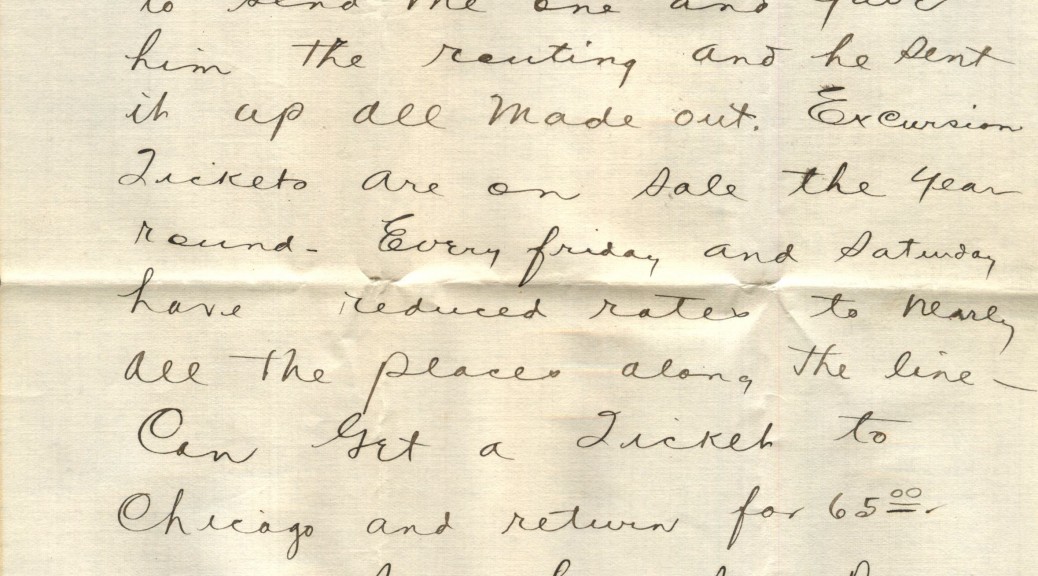 to send me one and gave
him the routing and he sent
it up all made out. Excursion
Tickets are on sale the year
round - Every friday and Saturday
have reduced rates to nearly
all the places along the line -
Can Get a Ticket to
Chicago and return for 65.00.